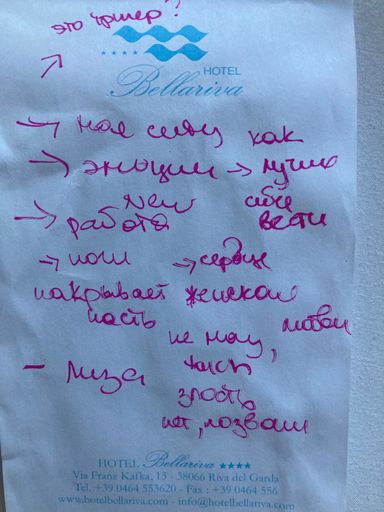 это триггер?
HOTEL
Bellariva
→ как
→ эмоции → лучше
New себе
→ работа вести
→ ноги → сердце
накрывает женская
часть
не могу,
- Лиза
злость
нет, позволи
HOTEL Bellariva ★★★★
Via Franz Kafka, 13 - 38066 Riva del Garda
Tel. +39 0464 553620 - Fax : +39 0464 556
www.hotelbellariva.com - info@hotelbellariva.com